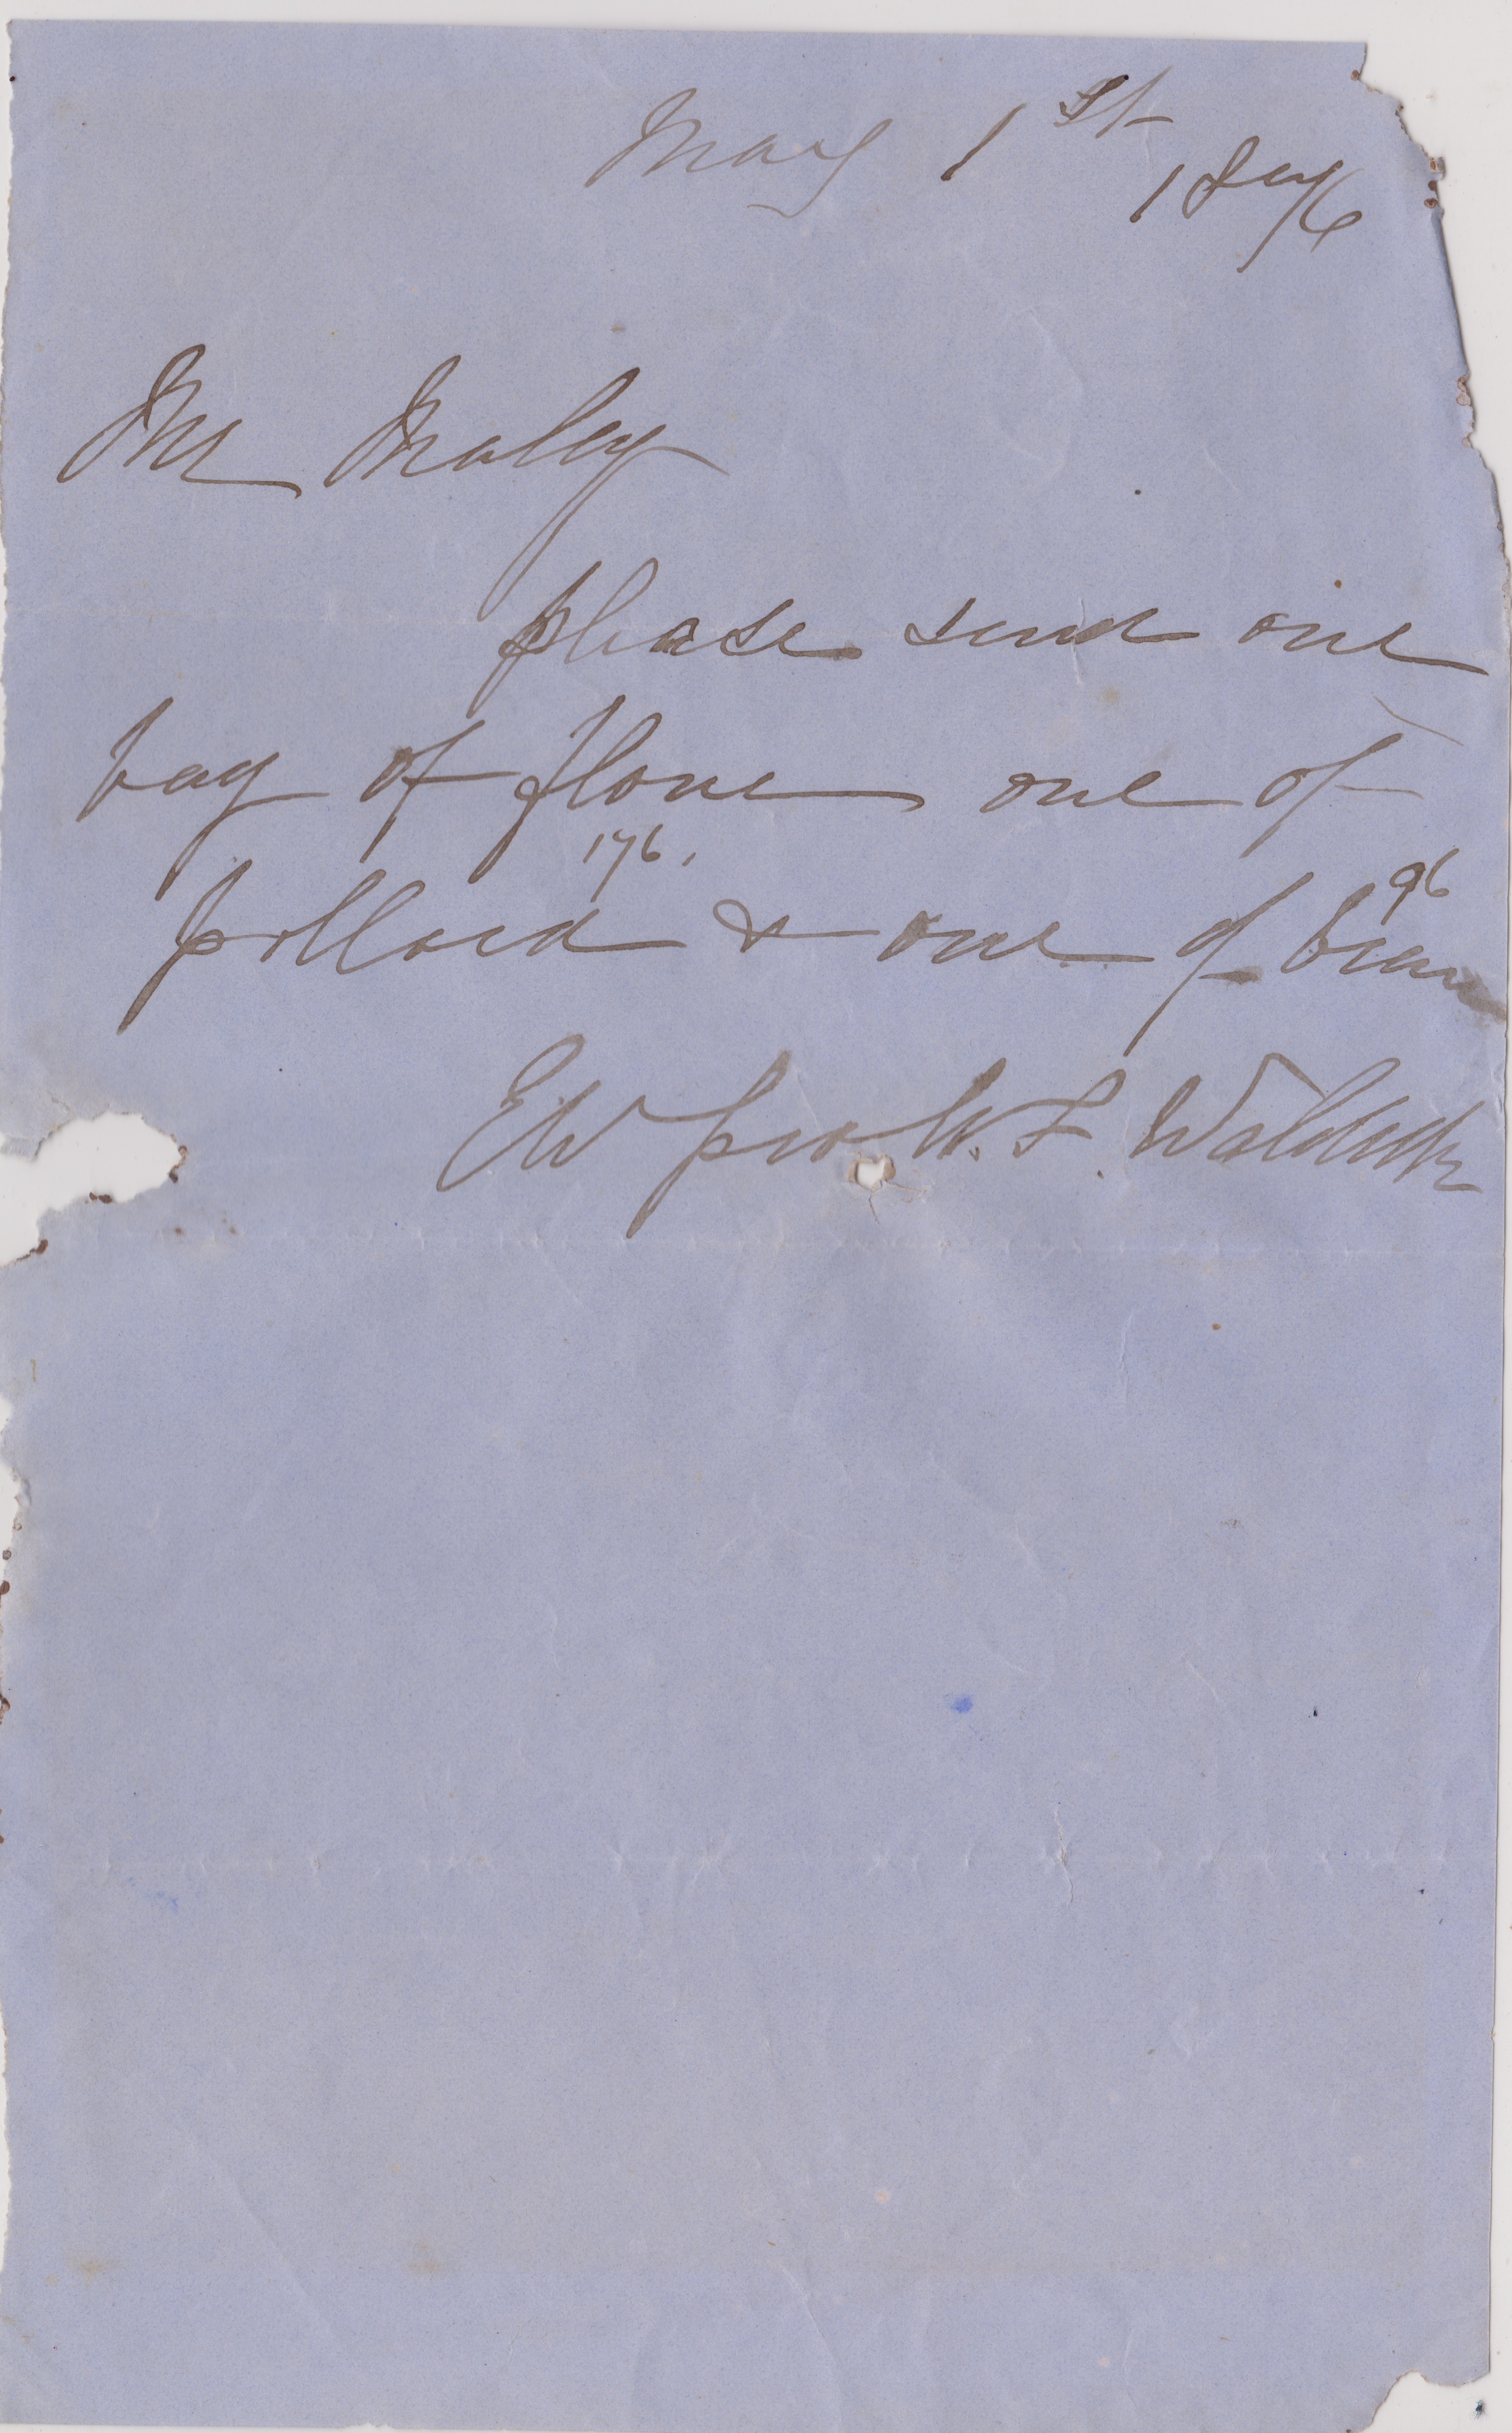 May 1st
1876
Mr Maley
please send one
bag of flour one of
176.
pollard & one of bran
96
EW pro W. F.